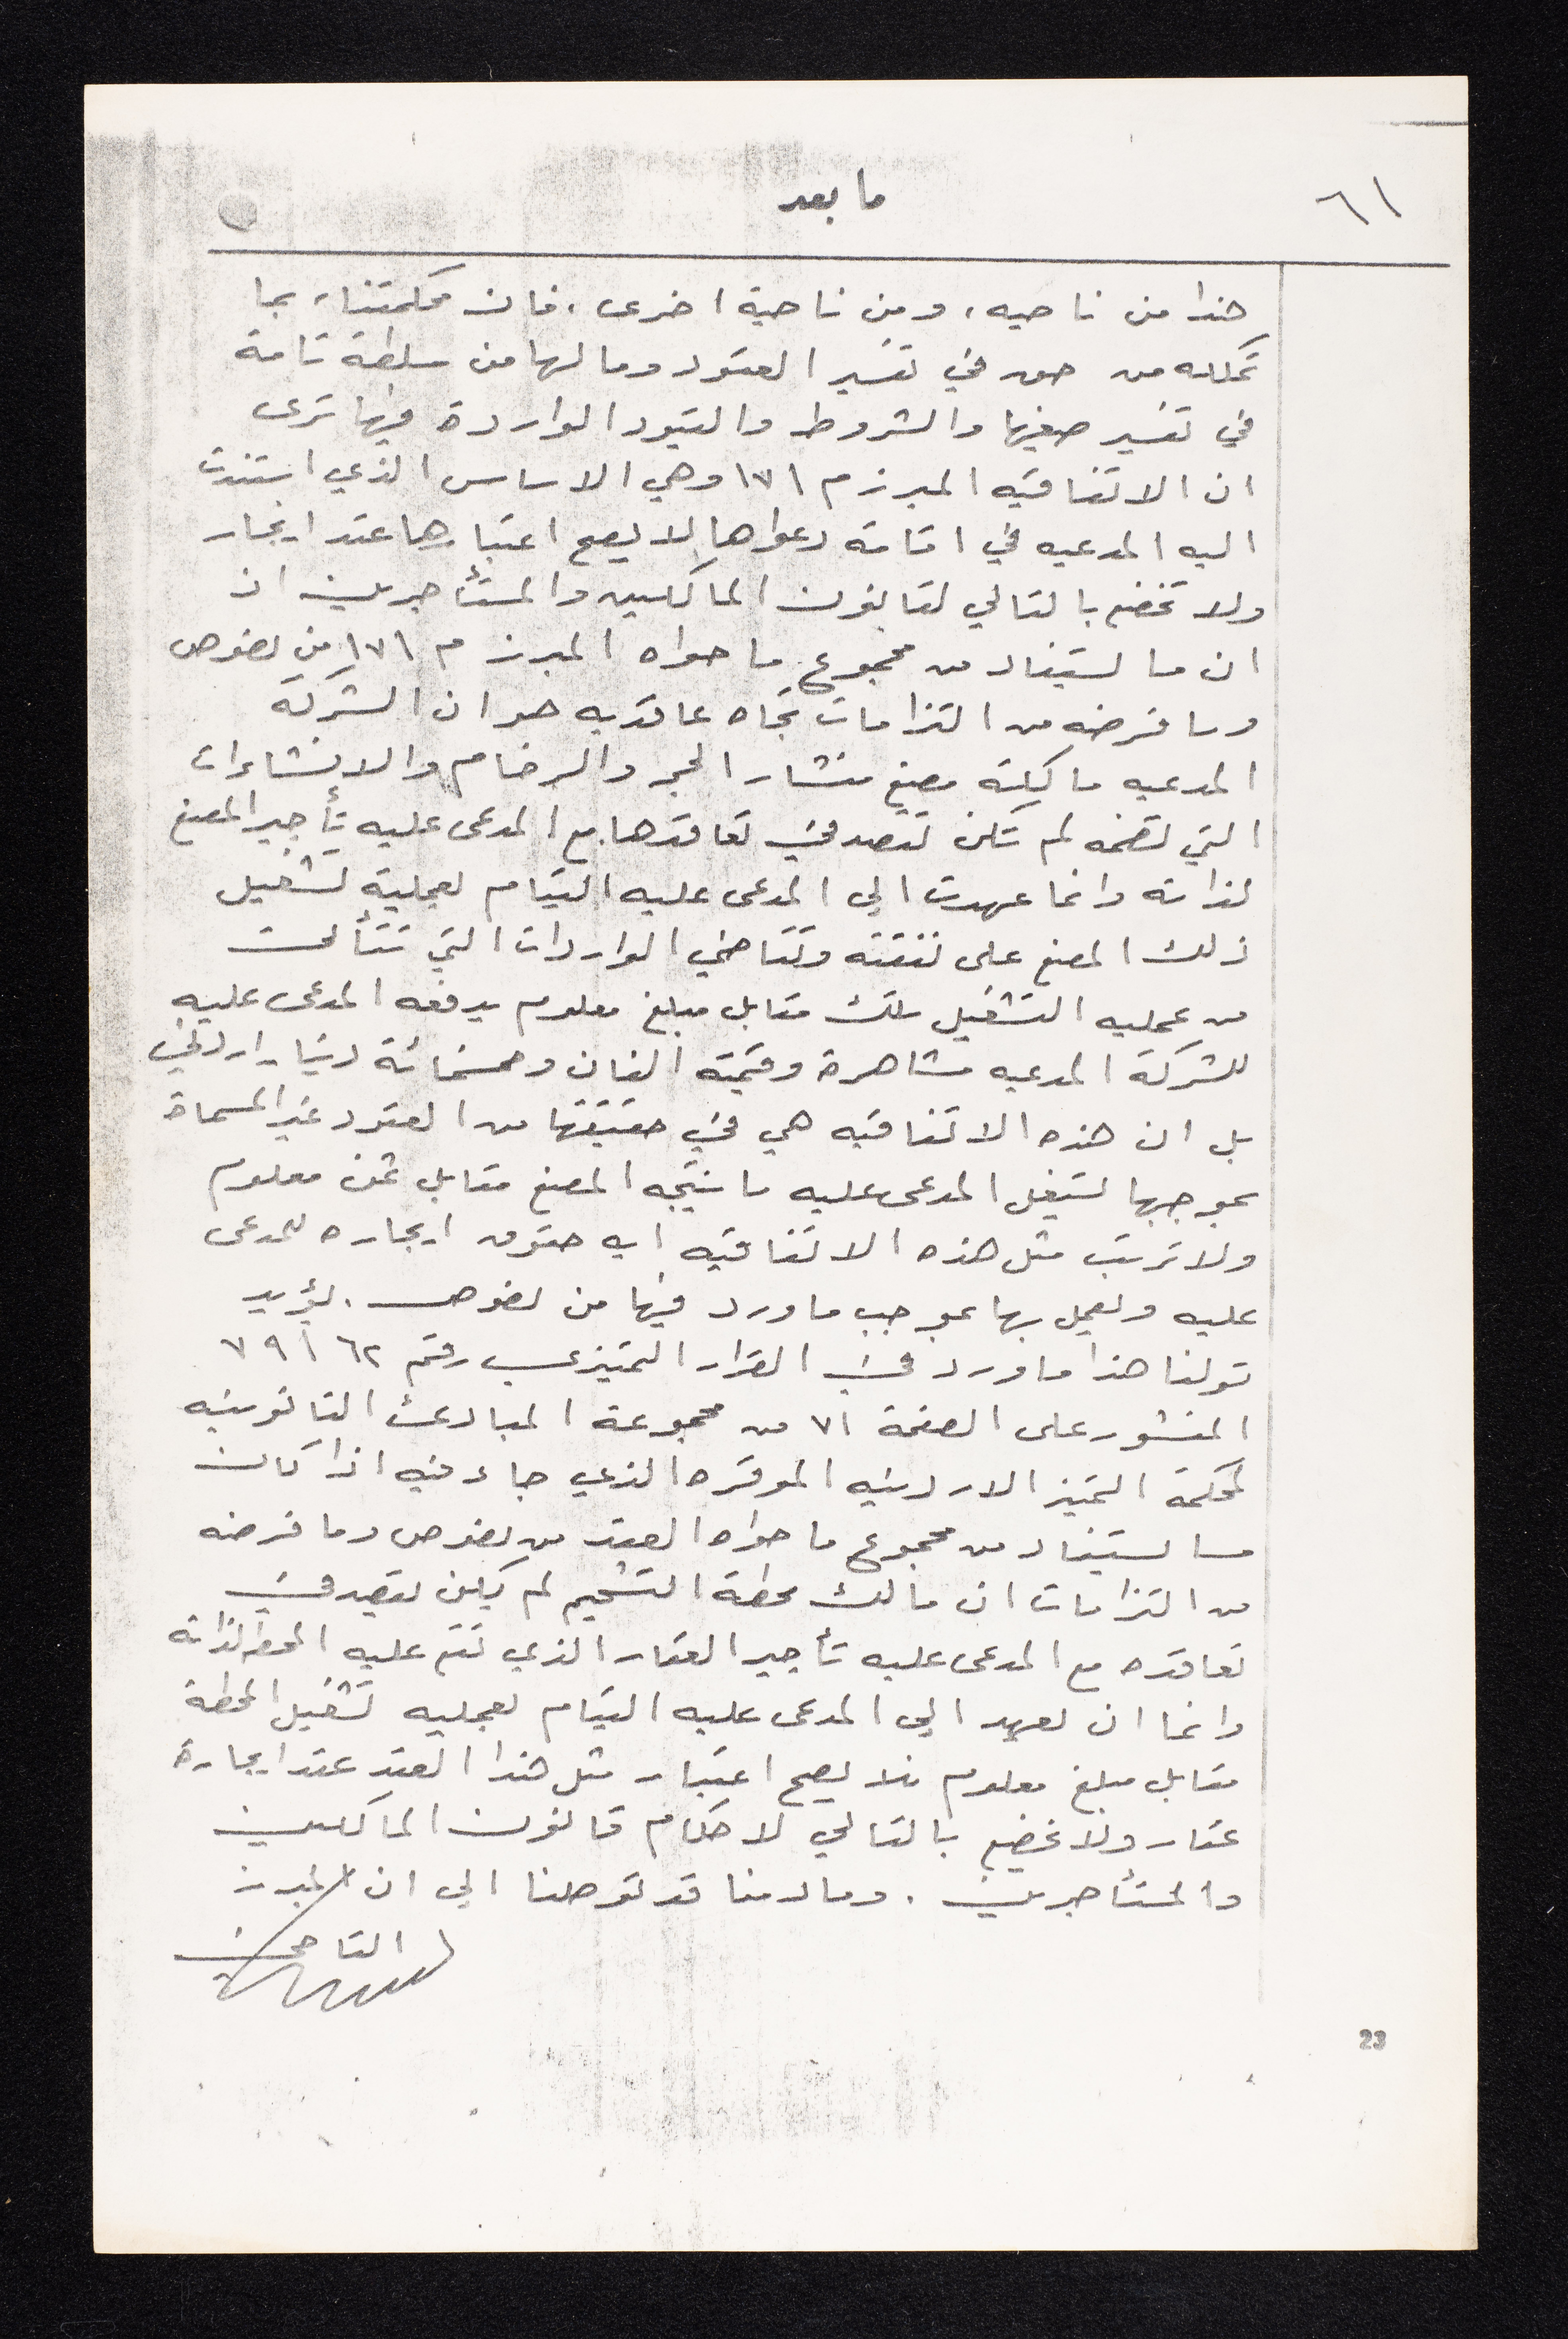 ٦١
ما بعد
هذا من ناحيه، ومن ناحية اخرى، فان محكمتنا، بما
تملكه من حق في تفسير العقود وما لها من سلطة تامة
في تفسير صيغها والشروط والقيود الواردة فيها ترى
ان الاتفاقيه المبرز م ١٧١ وهي الاساس الذي استندت
اليه المدعيه في اقامة دعواها لا يصح اعتبارها عقد ايجار
ولا تخضع بالتالي لقانون المالكين والمستأجرين اذ
ان ما يستفاد من مجموع ما حواه المبرز م ١٧١ من نصوص
وما فرضه من التزامات تجاه عاقديه هو ان الشركة
المدعيه مالكة مصنع منشار الحجر والرخام والانشاءات
التي تضمه لم تكن تقصد في تعاقدها مع المدعى عليه تأجير المصنع
لذاته وانما عهدت الى المدعى عليه القيام بعملية تشغيل
ذلك المصنع على نفقته وتقاضي الواردات التي تتأتى
من عمليه التشغيل تلك مقابل مبلغ معلوم يدفعه المدعى عليه
للشركة المدعيه مشاهرة وقيمته الفان وخمسمائة دينار اردني
بل ان هذه الاتفاقيه هي في حقيقتها من العقود غير المسماة
بموجبها يستغل المدعى عليه ما ينتجه المصنع مقابل ثمن معلوم
ولا ترتب مثل هذه الاتفاقيه اية حقوق ايجاره للمدعى
عليه ويعمل بها بموجب ما ورد فيها من نصوص. يؤيد
قولنا هذا ما ورد في القرار التميزي رقم ٦٢ / ٧٩
المنشور على الصفحة ٧١ من مجموعة المبادئ القانونيه
لمحكمة التميز الاردنيه الموقره الذي جاء فيه اذا كان
ما يستفاد من مجموع ما حواه العقد من نصوص وما فرضه
من التزامات ان مالك محطة التشحيم لم يكن يقصد في
تعاقده مع المدعى عليه تأجير العقار الذي تقوم عليه المحطة لذاته
وانما ان يعهد الى المدعى عليه القيام بعمليه تشغيل المحطة
مقابل مبلغ معلوم فلا يصح اعتبار مثل هذا العقد عقد ايجارة
عقار ولا يخضع بالتالي لاحكام قانون المالكين
والمستأجرين. وما دمنا قد توصلنا الى ان المبرز
القاضي
23